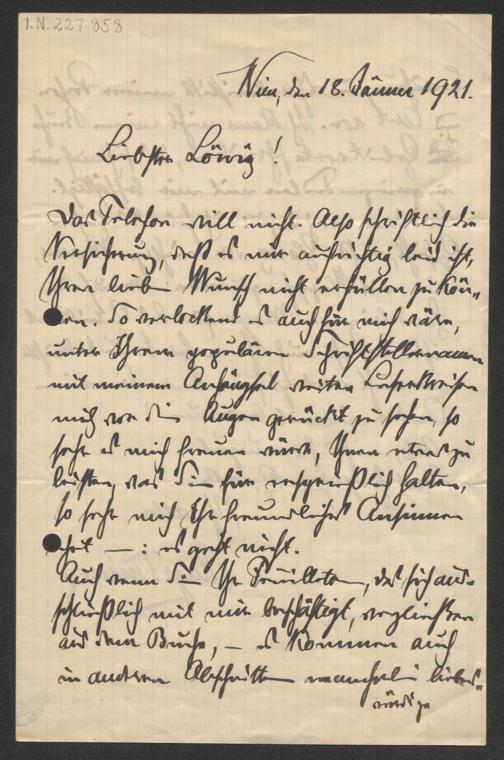 I.N. 227.858
Wien, den 18. Jänner 1921.
Liebster Löwig!
Das Telefon will nicht. Also schriftlich die
Versicherung, daß es mir aufrichtig leid ist,
Ihren lieben Wunsch nicht erfüllen zu kön-
nen. So verlockend es auch für mich wäre,
unter Ihrem populären Schriftstellernamen
mit meinem Anhängsel weiten Leserkreisen
mich vor die Augen gerückt zu sehen, so
sehr es mich freuen würde, Ihnen etwas zu
leisten, was Sie für ersprießlich halten,
so sehr mich Ihr freundliches Ansinnen
ehrt — : es geht nicht.
Auch wenn Sie Ihr Feuilleton, das sich aus-
schließlich mit mir beschäftigt,
aus dem Buche, – es kommen auch
in anderen Abschnitten manche liebens-
würdige